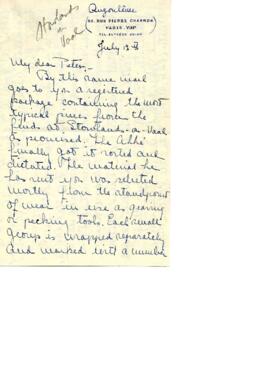 Stowlands
a
Vaal
Angoulême
52, RUE PIERRE CHARRON
PARIS. VIIIe
TEL. ELYSEES
July 13th
My dear Peter:-
By this same mail
goes to you a registered
package containing the most
typical pieces from the
finds at Stowlands-a-Vaal
as promised. The Abbé
finally got it sorted and
dictated. The material he
has sent you was selected
mostly from the standpoint
of wear in use as graving
or pecking tools. Each small
group is wrapped separately
and marked with a number